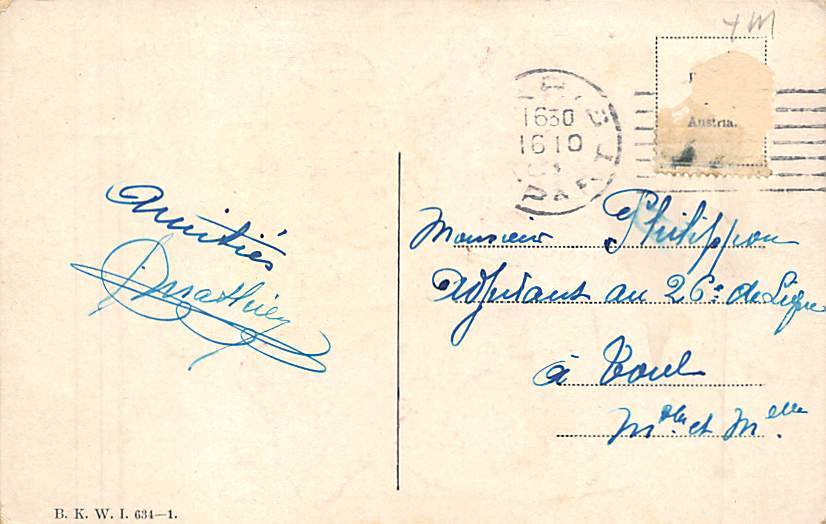 + M
Austria.
1630
1610
Amitiés
Mathieu
Monsieur Philippon
Adjudant au 26e de Ligne
à Toul
et Melle.
B. K. W. I. 634—1.